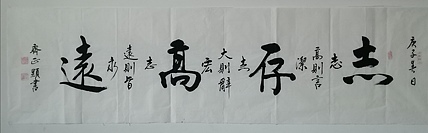 庚子夏日
志
高則言
志潔
存
大則辭
志宏
高
遠則旨
志永
遠